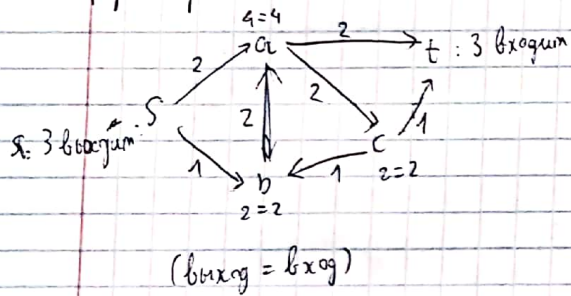 4=4
a 2 t : 3 входит
2 2
S 2 c 1
S: 3 выходит:
1 b 1 2=2
2=2
(выход = вход)